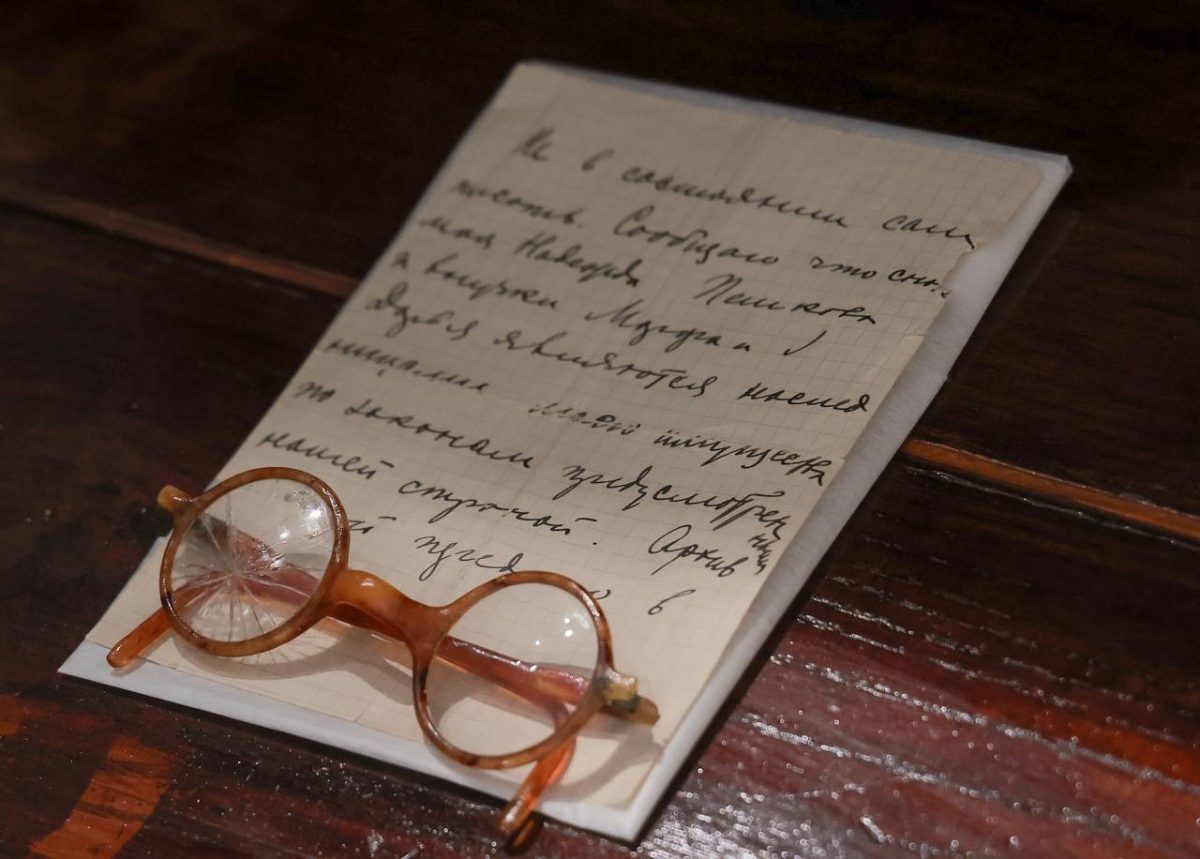 Не в состоянии сам
писать. Сообщаю что сно..
моя Надежда Пешкова
и внучки Марфа и
Дарья являются наслед
ницами моего имущества
по законам предусмотрен
ным
нашей страной. Архив
в